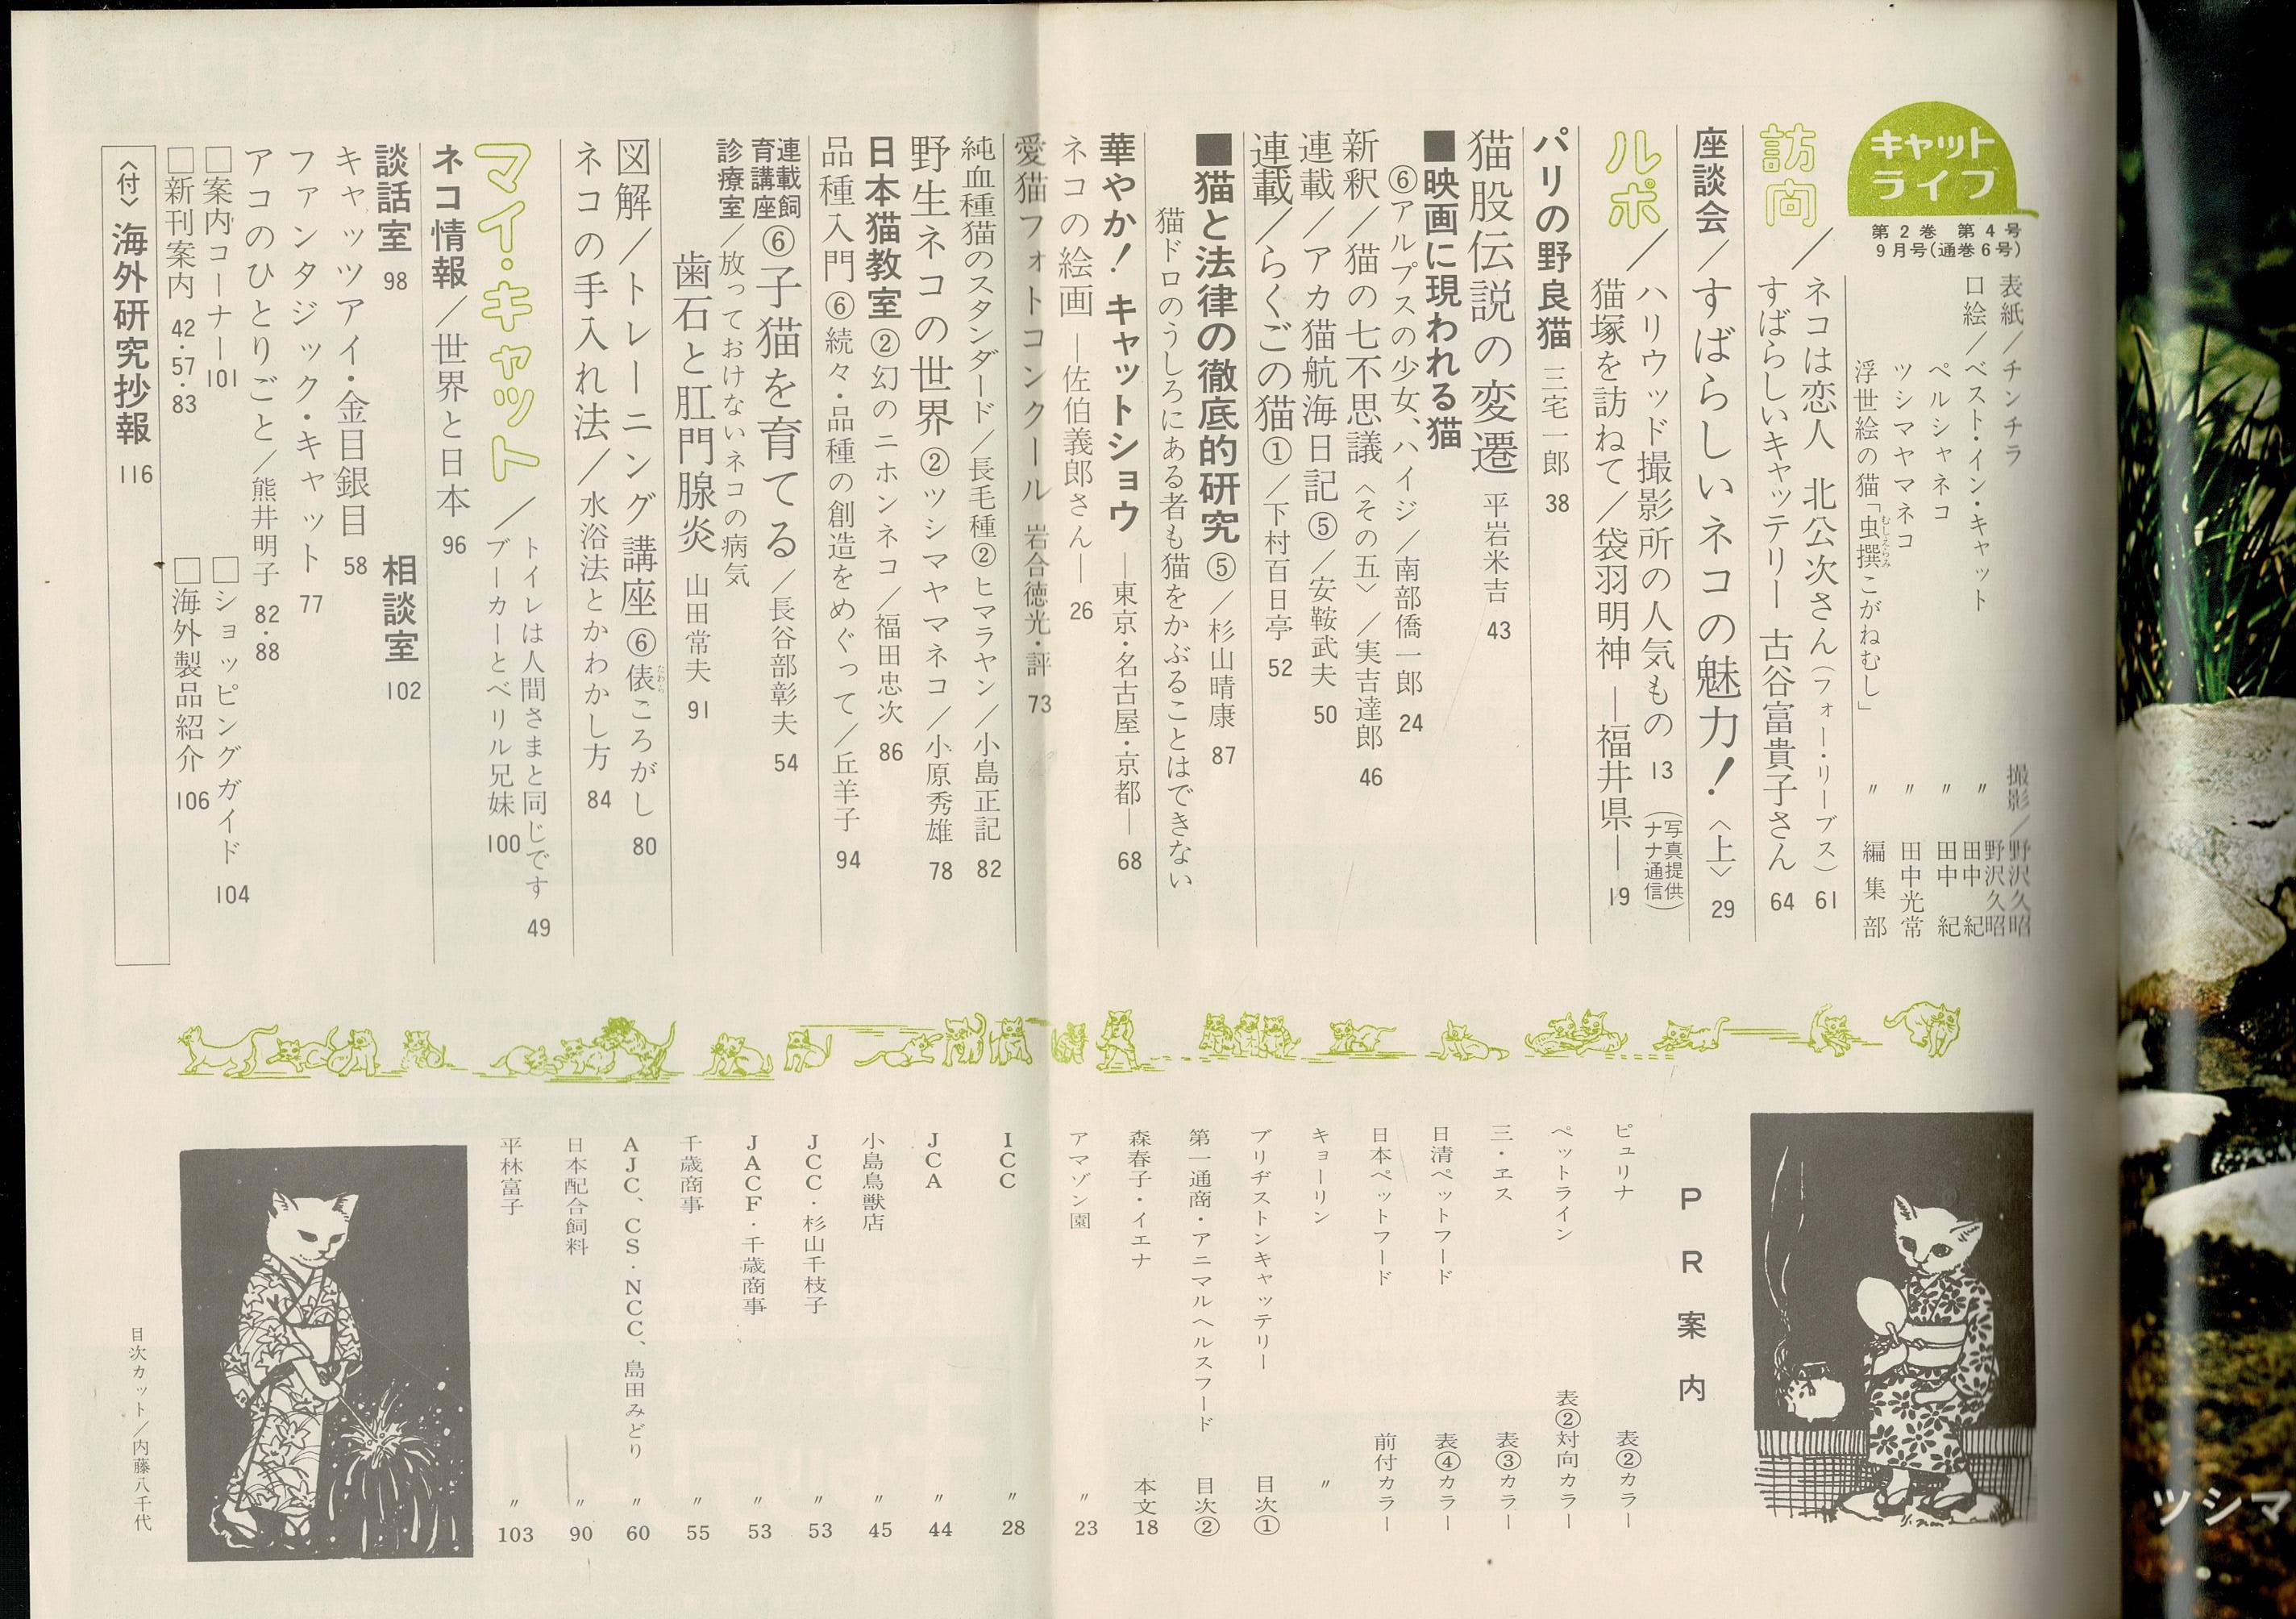 キャット
ライフ
第2巻 第4号
9月号(通巻6号)
表紙/チンチラ 撮影/野沢久昭
口絵/ベスト・イン・キャット 〃 野沢久昭
田中 紀
ペルシャネコ 〃 田中 紀
ツシマヤマネコ 〃 田中光常
浮世絵の猫「虫撰こがねむし」 〃 編集部
むしえらみ
訪問/
ネコは恋人 北公次さん(フォー・リーブス) 61
すばらしいキャッテリー 古谷富貴子さん 64
座談会/すばらしいネコの魅力!〈上〉 29
ルポ/
ハリウッド撮影所の人気もの 13 (写真提供 ナナ通信)
猫塚を訪ねて/袋羽明神 ―福井県― 19
パリの野良猫 三宅一郎 38
猫股伝説の変遷 平岩米吉 43
■映画に現われる猫
⑥アルプスの少女、ハイジ/南部僑一郎 24
新釈/猫の七不思議〈その五〉/実吉達郎 46
連載/アカ猫航海日記⑤/安鞍武夫 50
連載/らくごの猫①/下村百日亭 52
■猫と法律の徹底的研究⑤/杉山晴康 87
猫ドロのうしろにある者も猫をかぶることはできない
華やか!キャットショウ ―東京・名古屋・京都― 68
ネコの絵画 ―佐伯義郎さん― 26
愛猫フォトコンクール 岩合徳光・評 73
純血種猫のスタンダード/長毛種②ヒマラヤン/小島正記 82
野生ネコの世界②ツシマヤマネコ/小原秀雄 78
日本猫教室②幻のニホンネコ/福田忠次 86
品種入門⑥続々・品種の創造をめぐって/丘羊子 94
連載飼育講座⑥子猫を育てる/長谷部彰夫 54
診療室/放っておけないネコの病気
歯石と肛門腺炎 山田常夫 91
図解/トレーニング講座⑥俵ころがし 80
たわら
ネコの手入れ法/水浴法とかわかし方 84
マイ・キャット/
トイレは人間さまと同じです 49
ブーカーとベリル兄妹 100
ネコ情報/世界と日本 96
談話室 98 相談室 102
キャッツアイ・金目銀目 58
ファンタジック・キャット 77
アコのひとりごと/熊井明子 82・88
□案内コーナー 101 □ショッピングガイド 104
□新刊案内 42・57・83 □海外製品紹介 106
〈付〉海外研究抄報 116
PR案内
ピュリナ 表②カラー
ペットライン 表②対向カラー
三・ヱス 表③カラー
日清ペットフード 表④カラー
日本ペットフード 前付カラー
キョーリン 〃
ブリヂストンキャッテリー 目次①
第一通商・アニマルヘルスフード 目次②
森春子・イエナ 本文18
アマゾン園 〃 23
ICC 〃 28
JCA 〃 44
小島鳥獣店 〃 45
JCC・杉山千枝子 〃 53
JACF・千歳商事 〃 53
千歳商事 〃 55
AJC、CS・NCC、島田みどり 〃 60
日本配合飼料 〃 90
平林富子 〃 103
目次カット/内藤八千代
ツシマ